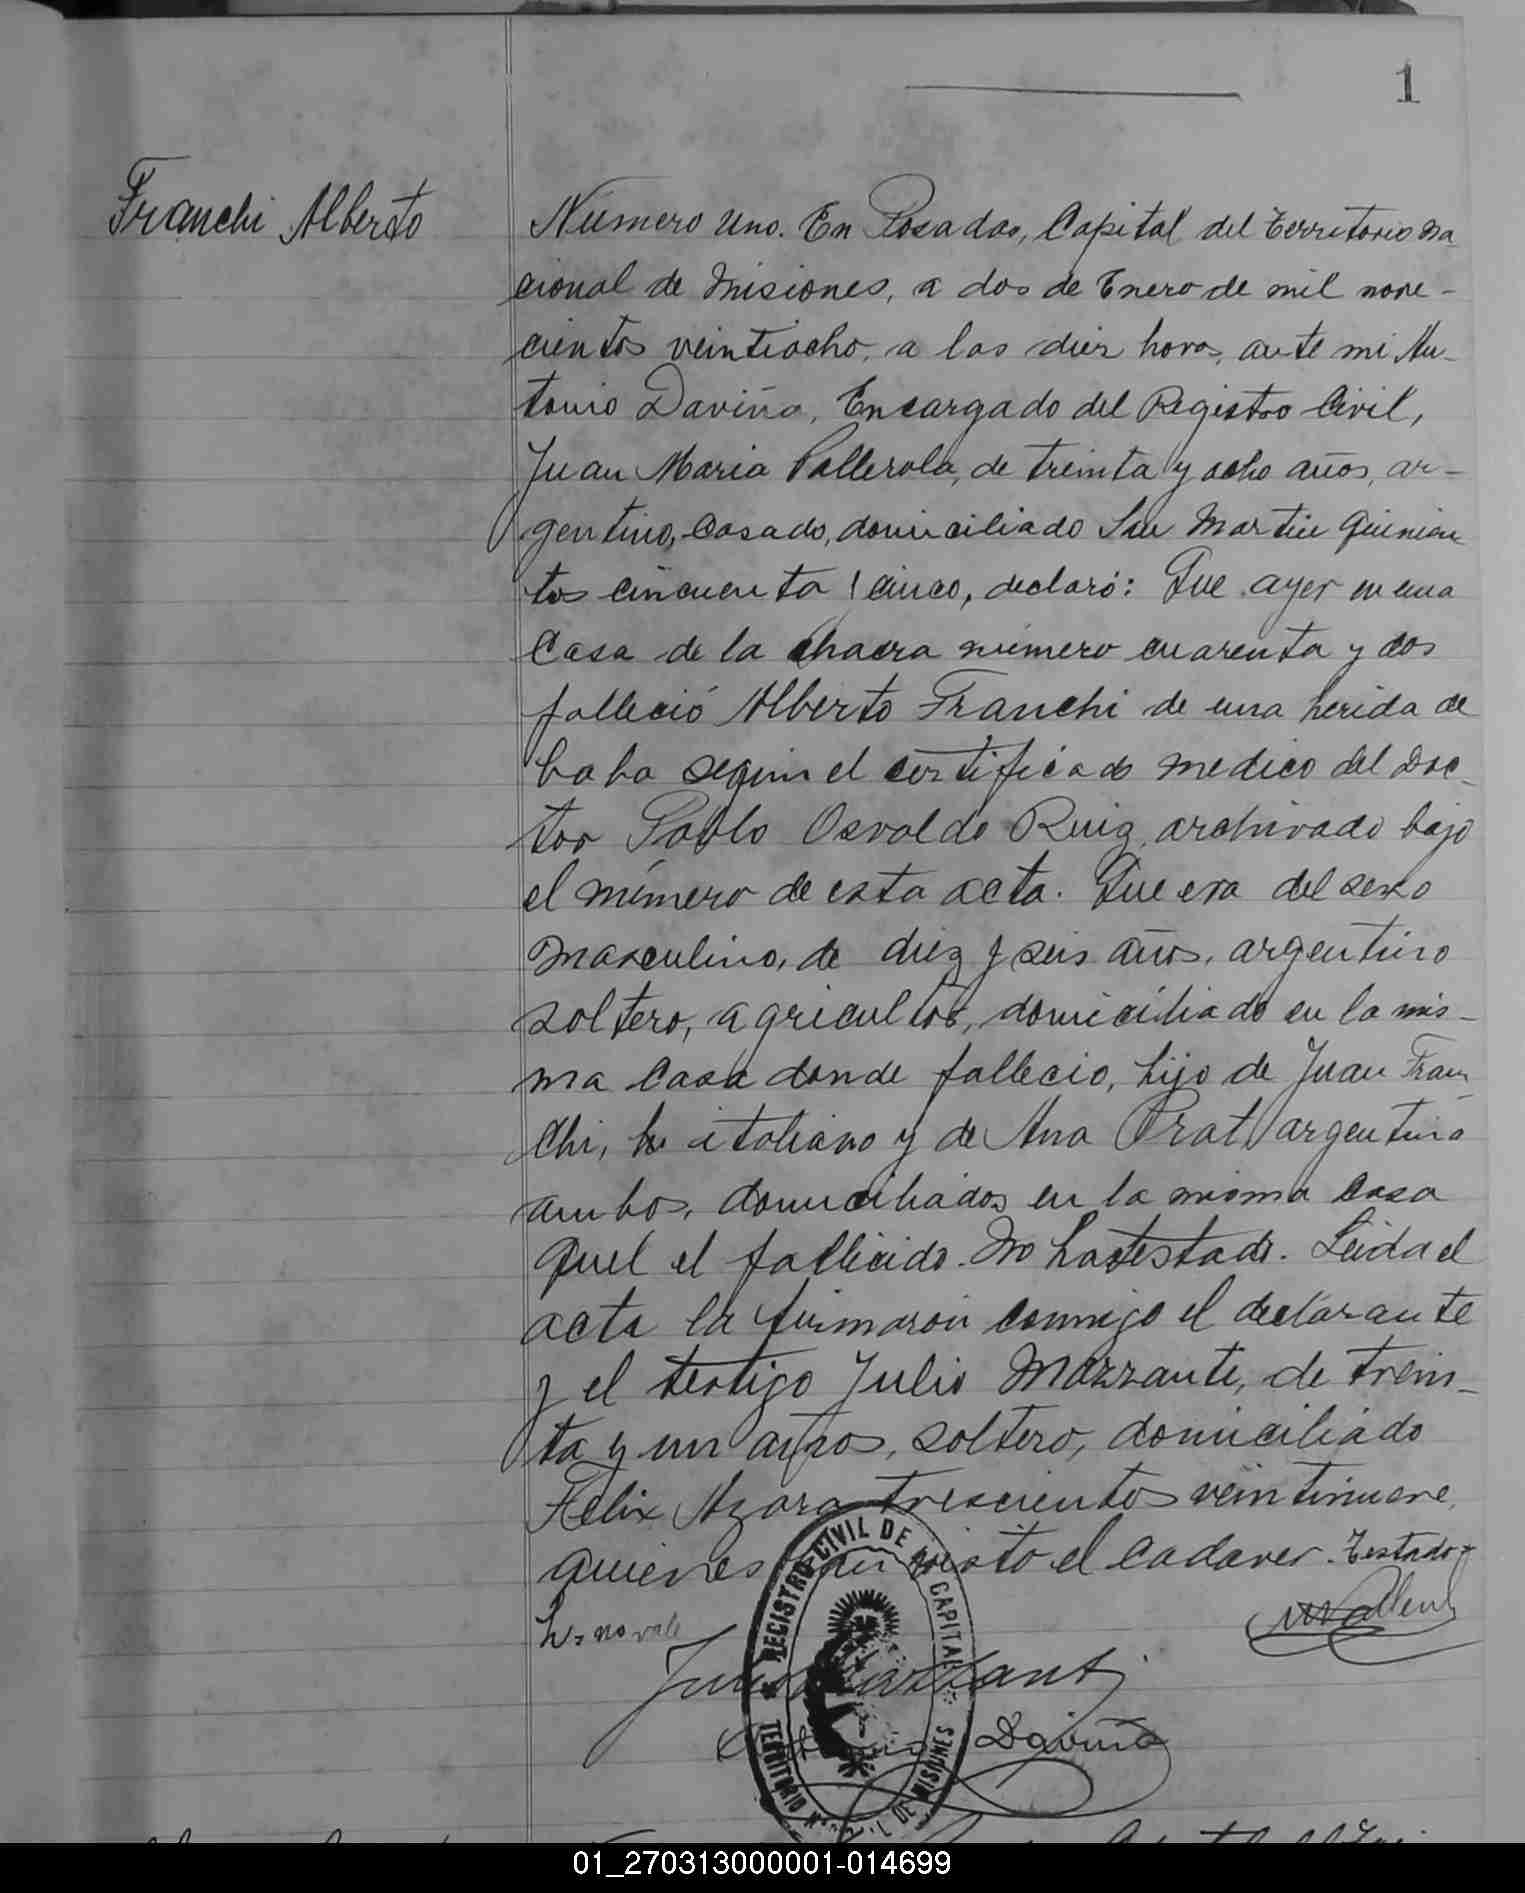 1
Franchi Alberto
Número uno. En Posadas, Capital del Territorio Na
cional de Misiones, a dos de Enero de mil nove-
cientos veintiocho, a las diez horas, ante mi An-
tonio Daviña, Encargado del Registro Civil,
Juan Maria Pallerola, de treinta y ocho años, ar-
gentino, casado, domiciliado San Martin quinien
tos cincuenta y cinco, declaró: Que ayer en una
casa de la chacra número cuarenta y dos
falleció Alberto Franchi de una herida de
bala según el certificado medico del Doc-
tor Pablo Osvaldo Ruiz, archivado bajo
el número de esta acta. Que era del sexo
masculino, de diez y seis años, argentino
soltero, agricultor, domiciliado en la mis-
ma casa donde fallecio, hijo de Juan Fran
chi, h italiano y de Ana Prat argentina
ambos, domiciliados en la misma casa
quel el fallecido. No ha testado. Leida el
acta la firmaron conmigo el declarante
y el testigo Julio Mazzante, de trein-
ta y un años, soltero, domiciliado
Felix Azara trescientos veintinueve,
quienes han visto el cadaver. Testado:
h= no vale
Daviña
REGISTRO CIVIL DE LA CAPITAL
TERRITORIO NACIONAL DE MISIONES
01_270313000001-014699